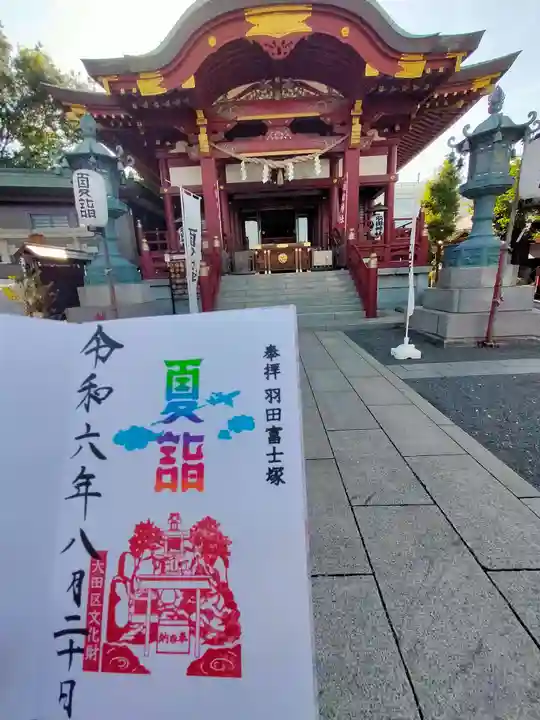 奉拝 羽田富士塚
夏詣
令和六年八月二十日
大田区文化財
奉納
夏詣